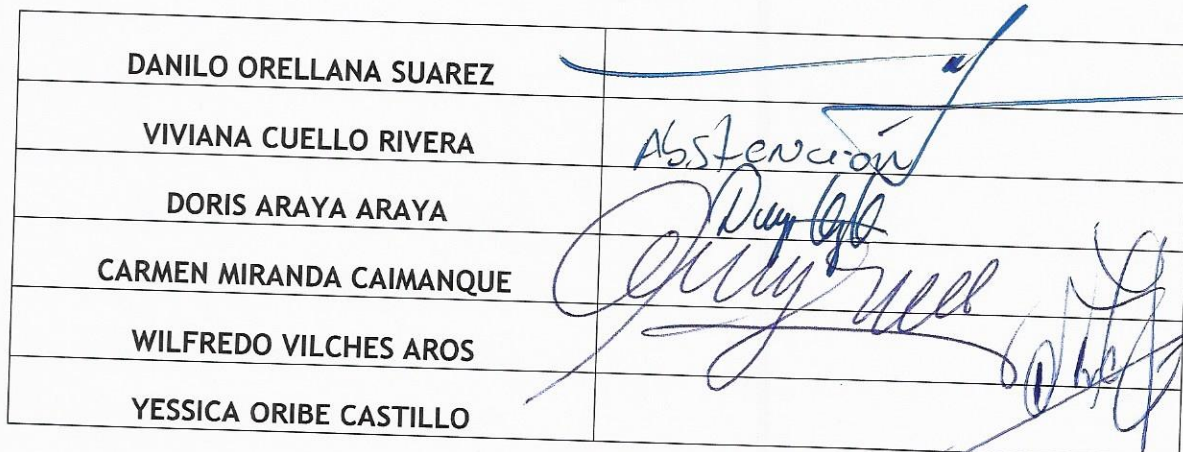 DANILO ORELLANA SUAREZ
VIVIANA CUELLO RIVERA
Abstención
DORIS ARAYA ARAYA
CARMEN MIRANDA CAIMANQUE
WILFREDO VILCHES AROS
YESSICA ORIBE CASTILLO